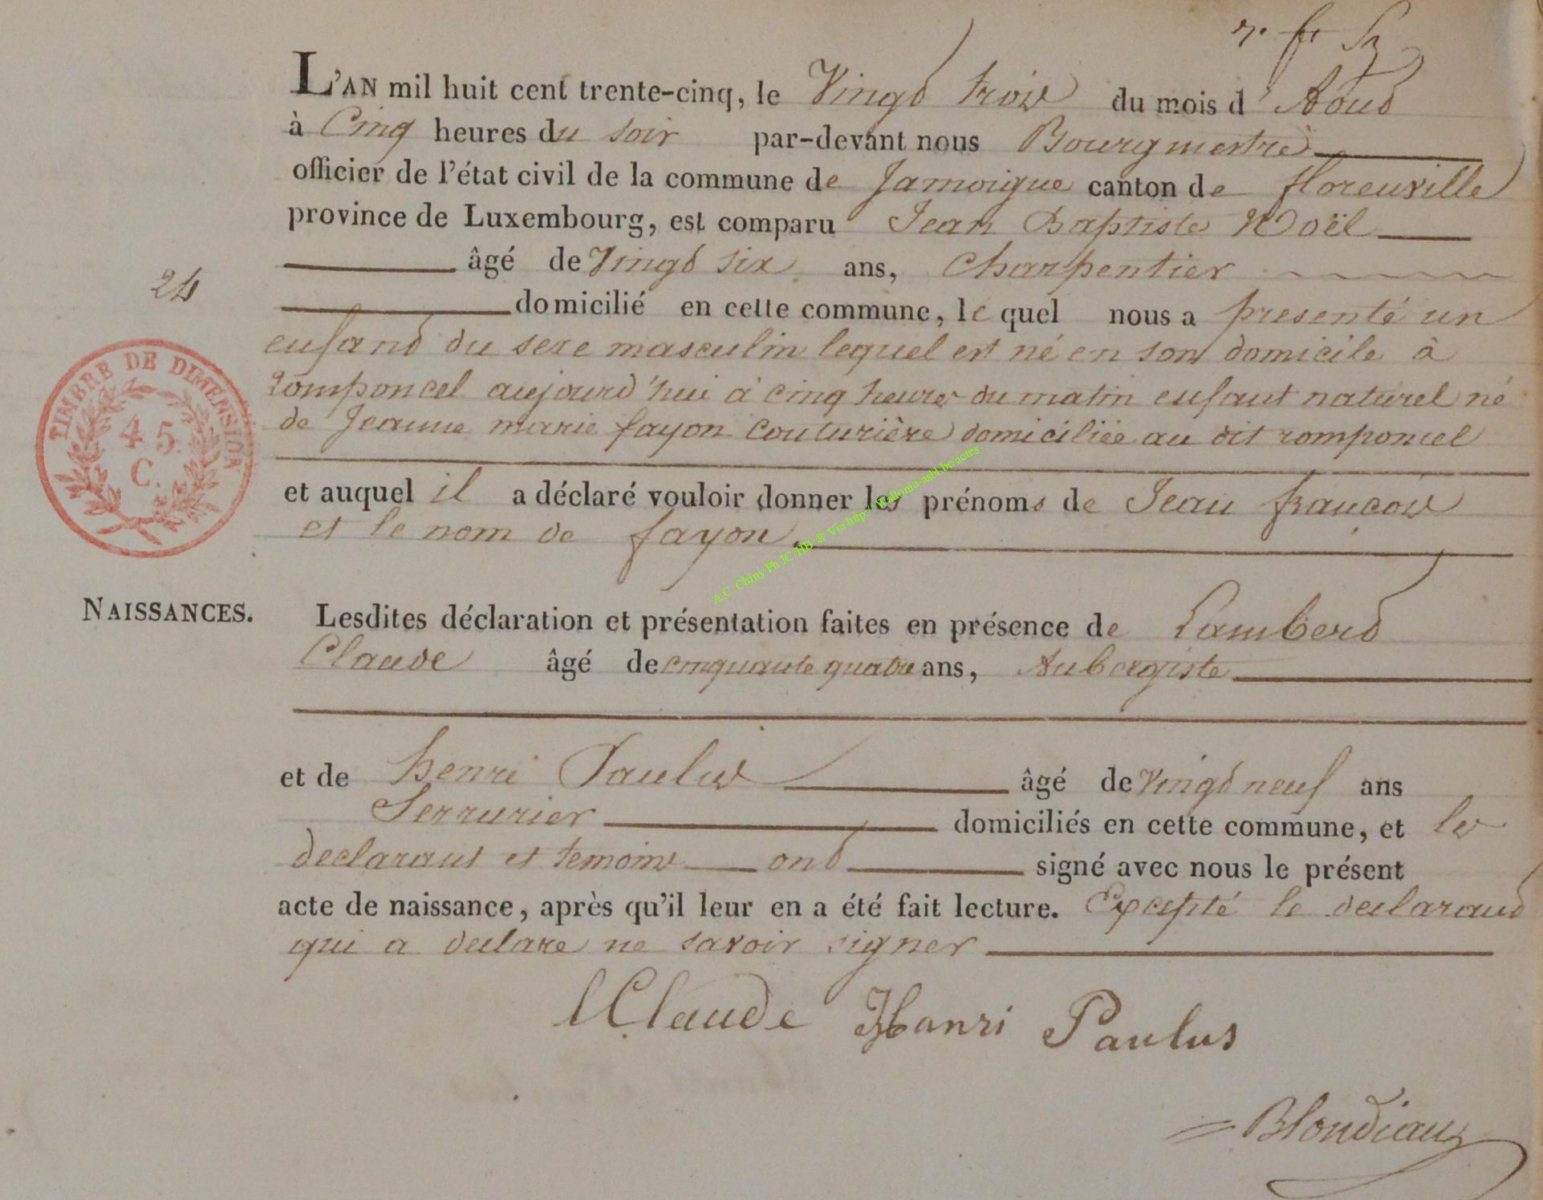 L'AN mil huit cent trente-cinq, le Vingt trois du mois d'Aout
à Cinq heures du soir par-devant nous Bourgmestre
officier de l'état civil de la commune de Jamoigne canton de florenville
province de Luxembourg, est comparu Jean Baptiste Noël
âgé de Vingt six ans, Charpentier
24
domicilié en cette commune, le quel nous a presenté un
enfant du sexe masculin lequel est né en son domicile à
romponcel aujourd'hui à cinq heures du matin enfant naturel né
de Jeanne marie fayon Couturière domiciliée au dit romponcel
TIMBRE DE DIMENSION
45
C.
et auquel il a déclaré vouloir donner les prénoms de Jean françois
et le nom de fayon.
NAISSANCES.
Lesdites déclaration et présentation faites en présence de Lambert
Claude âgé de cinquante quatre ans, Aubergiste
et de henri Paulus âgé de Vingt neuf ans
Serrurier domiciliés en cette commune, et les
declarant et temoins ont signé avec nous le présent
acte de naissance, après qu'il leur en a été fait lecture. Excepté le declarant
qui a declare ne savoir signer
lClaude Hanri Paulus
Blondiaux